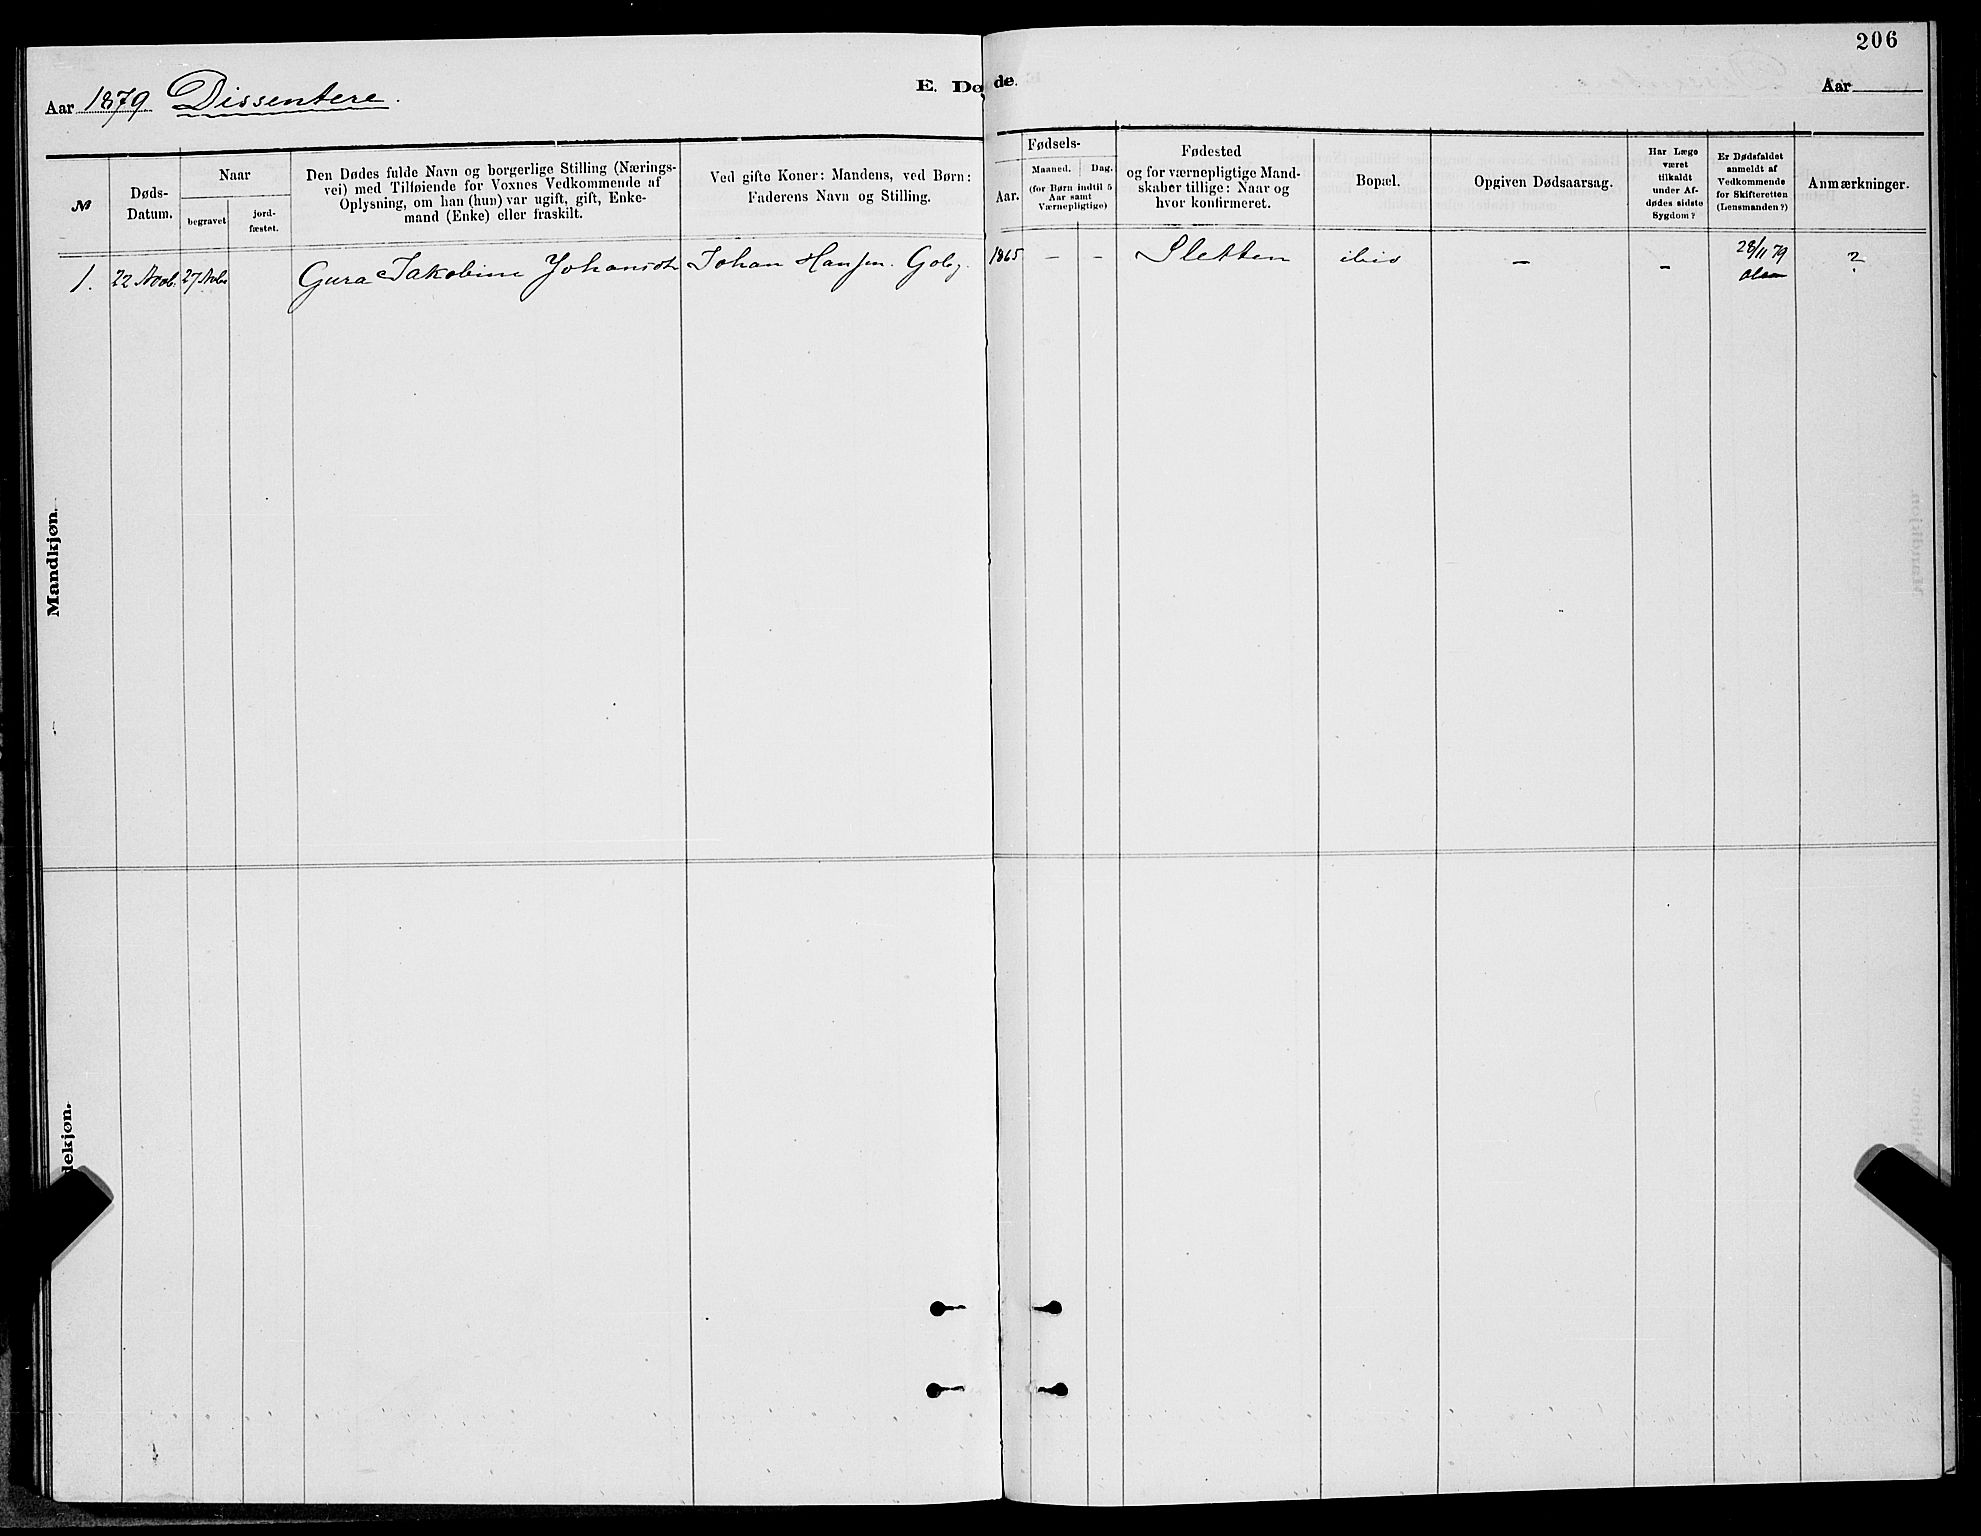 206
Aar 1879 Dissentere.
E. Dø
de.
Aar
№
Døds-
Datum.
Naar
begravet
jord-
fæstet.
Den Dødes fulde Navn og borgerlige Stilling (Nærings-
vei) med Tilføiende for Voxnes Vedkommende af
Oplysning, om han (hun) var ugift, gift, Enke-
mand (Enke) eller fraskilt.
Ved gifte Koner: Mandens, ved Børn:
Faderens Navn og Stilling.
Fødsels-
Aar.
Maaned.
Dag.
(for Børn indtil 5
Aar samt
Værnepligtige)
Fødested
og for værnepligtige Mand-
skaber tillige: Naar og
hvor konfirmeret.
Bopæl.
Opgiven Dødsaarsag.
Har Læge
været
tilkaldt
under Af-
dødes sidste
Sygdom?
Er Dødsfaldet
anmeldt af
Vedkommende
for Skifteretten
(Lensmanden?)
Anmærkninger.
1. 22 Novb. 27 Novb. Gura Jakobine Johansdtr Johan Hansen. 1865 – – Sletten ibid – – 28/11 79 ?
Olsen
Mandkjøn.
dekjøn.